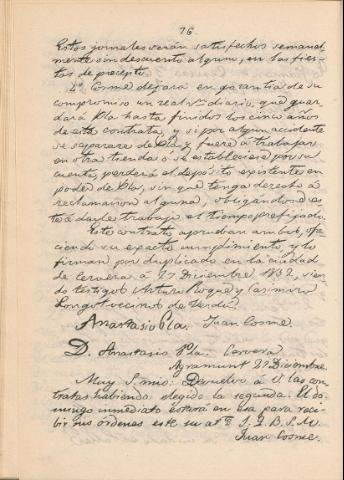 76
Estos jornales serán satisfechos semanal
mente sin descuento alguno, en los fies-
tas de precepto.
4º Cosme dejará en garantía de su
compromiso un real vn diario, que guar
dará Pla hasta finidos los cinco años
de esta contrata, y si por algun accidente
se separare de Pla y fuere á trabajar
en otra tienda ó se estableciese por su
cuenta, perderá el depósito existente en
poder de Pla, sin que tenga derecho á
reclamacion alguna, obligandose es
te á darle trabajo el tiempo prefijado.
Este contrato aprueban ambos, ofre
ciendo su exacto cumplimiento, y lo
firman por duplicado en la ciudad
de Cervera á 27 Diciembre 1882, sien
do testigos Arturo Roque y Casimiro
Bongol vecinos de Verdú.
Anastasio Pla. Juan Cosme.
D. Anastasio Pla. Cervera
Agramunt 29 Diciembre.
Muy S. mio: Devuelvo á V. las con
tratas habiendo elegido la segunda. El do-
mingo inmediato estaré en esa para reci
bir sus órdenes este su atº S. Q. B. S. M.
Juan Cosme.